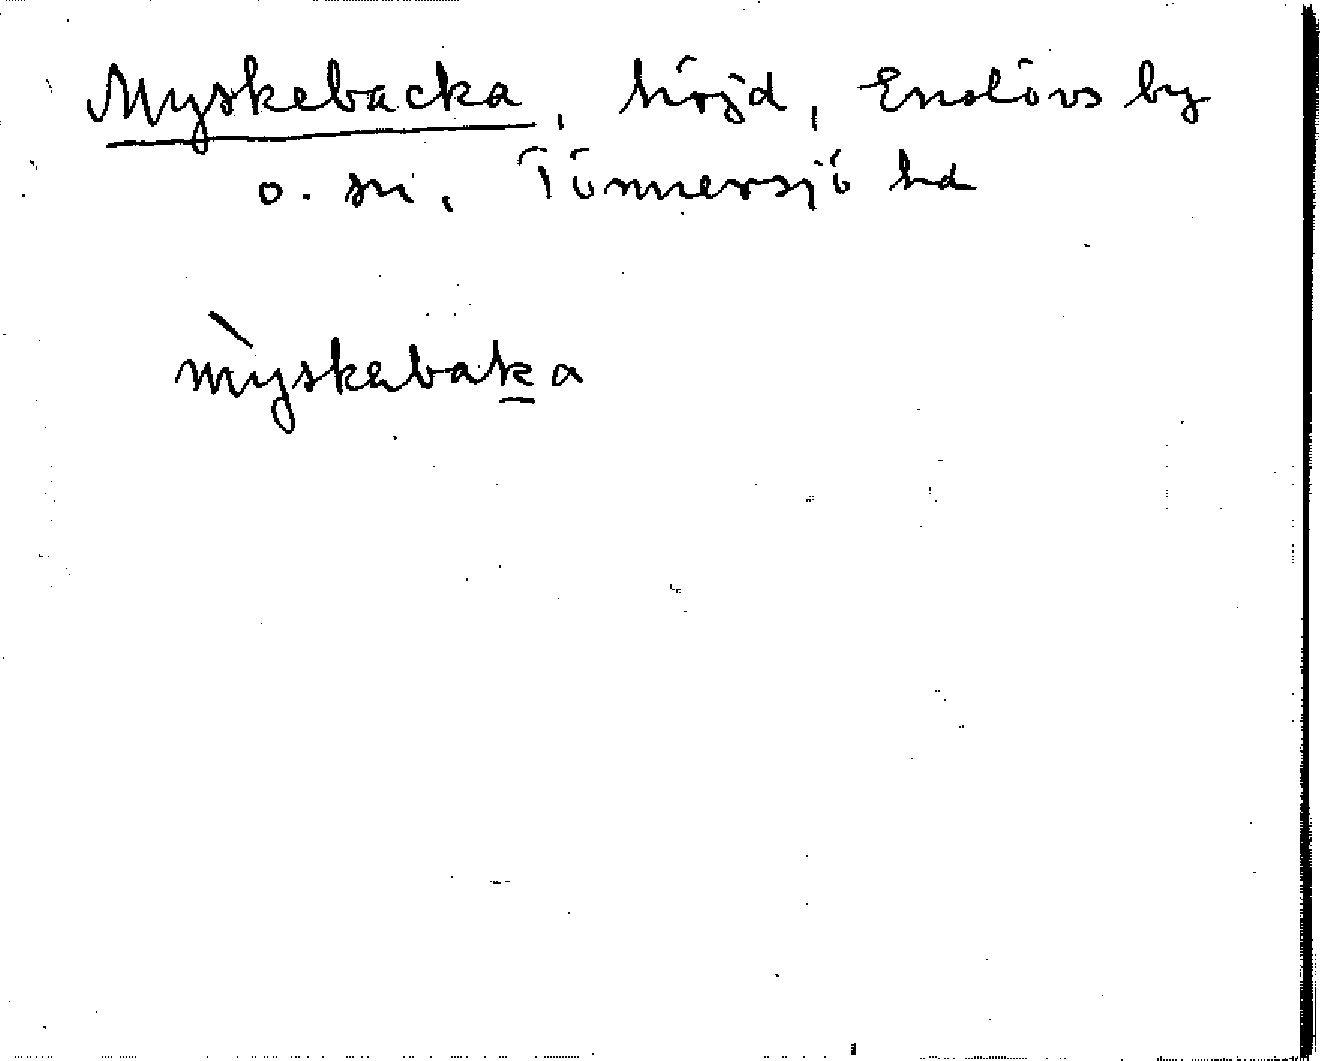 Myskebacka, höjd, Enslövs by
o. sn, Tönnersjö hd
mỳskebaka